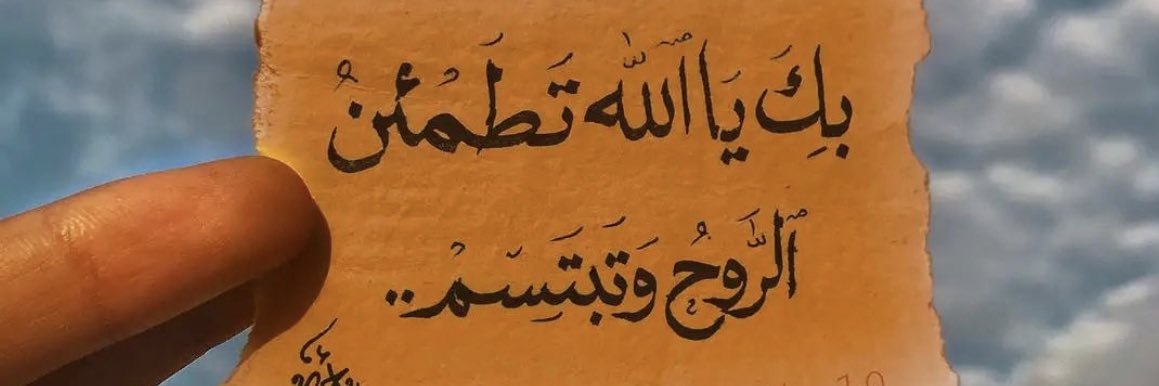 بِكَ يَا ٱللّٰه تَطْمَئِنُ
ٱلرَّوحُ وَتَبْتَسِمْ..